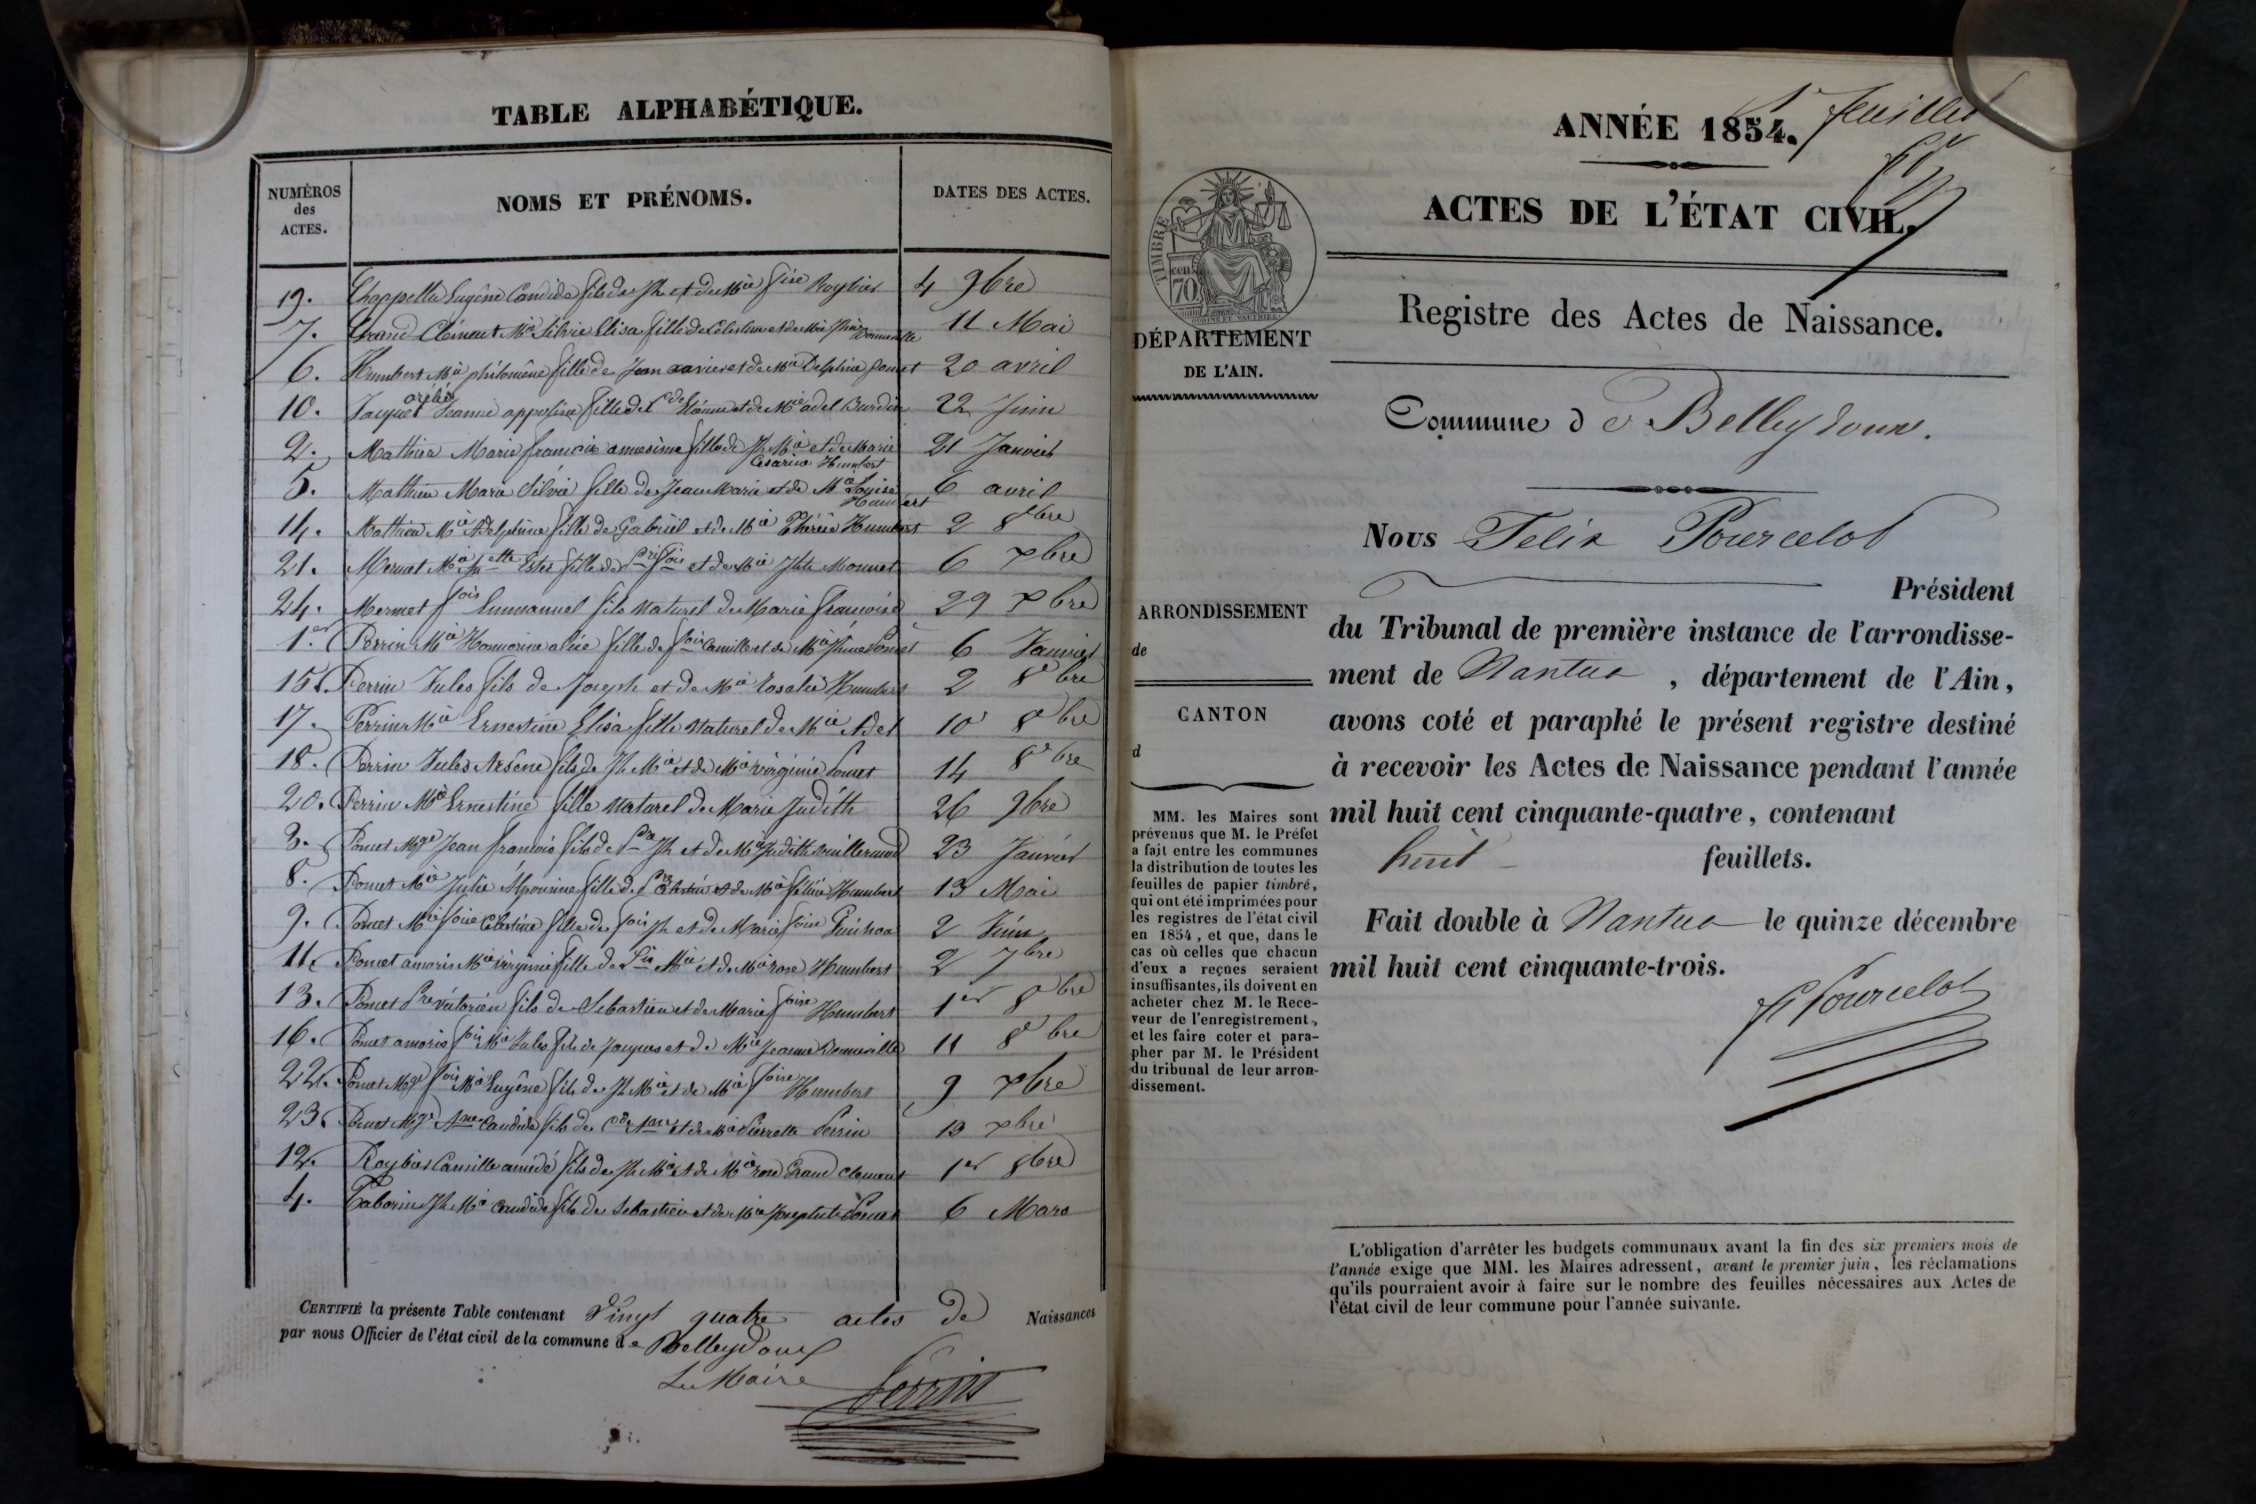 TABLE ALPHABÉTIQUE.
NUMÉROS des ACTES. NOMS ET PRÉNOMS. DATES DES ACTES.
19. Chappella Eugène Candide fils de Jh et de Mie fçoise Roybier 4 9bre
7. Grand Clément Mie Silvie Elisa fille de Célestin et de Mie 11 Mai
6. Humbert Mie philomène fille de Jean xavier et de Mie Delphine Poncet 20 avril
10. Jacquet Jeanne fille de et de Mie adel Burdin 22 Juin
2. Mathieu Marie fille de Jh Mie et de Marie Césarine Humbert 21 Janvier
5. Mathieu Marie Silvie fille de Jean Marie et de Mie Louise Humbert 6 avril
14. Mathieu Mie Adelphine fille de Gabriel et de Mie Thérèse Humbert 2 8bre
21. Mermet Mie Jhette Ester fille de et de Mie Jhte Mermet 6 xbre
24. Mermet fçois Emmanuel fils naturel de Marie françoise 29 xbre
1er Perrin Mie Honnorine alice fille de fçois Camille et de Mie Poncet 6 Janvier
15. Perrin Jules fils de Joseph et de Mie Rosalie Humbert 2 8bre
17. Perrin Mie Ernestine Elisa fille naturel de Mie Adel 10 8bre
18. Perrin Jules Arsène fils de Jh Mie et de Mie virginie Poncet 14 8bre
20. Perrin Mie Ernestine fille naturel de Marie Judith 26 9bre
3. Poncet Mgr Jean françois fils de Pre Jh et de Mie Judith Vuillermoz 23 Janvier
8. Poncet Mie Julie Alponsine fille de et de Mie Humbert 13 Mai
9. Poncet Mie fçoise Célestine fille de fçois Jh et de Marie fçoise 2 Juin
11. Poncet amoris Mie virginie fille de Mie et de Mie rose Humbert 2 7bre
13. Poncet Pre victorien fils de Sebastien et de Marie fçoise Humbert 1er 8bre
16. Poncet amoris fçois Mie Jules fils de Jacques et de Mie Jeanne 11 8bre
22. Poncet Mgr fçois Mie Eugène fils de Jh Mie et de Mie fçoise Humbert 9 xbre
23. Poncet Mgr Candide fils de et de Mie Pierrette Perrin 19 xbre
12. Roybier Camille amédé fils de Jh Mie et de Mie rose Grand Clement 1er 8bre
4. Taborin Jh Mie Candide fils de Sebastien et de Mie Poncet 6 Mars
CERTIFIÉ la présente Table contenant Vingt quatre actes de Naissances
par nous Officier de l'état civil de la commune de Belleydoux
Le Maire Perrin
1er feuillet
ANNÉE 1854.
ACTES DE L'ÉTAT CIVIL.
TIMBRE
70 cent
Registre des Actes de Naissance.
DÉPARTEMENT
DE L'AIN.
Commune de Belleydoux.
Nous Félix Pourcelot
Président
ARRONDISSEMENT
de
CANTON
d
du Tribunal de première instance de l'arrondisse-
ment de Nantua, département de l'Ain,
avons coté et paraphé le présent registre destiné
à recevoir les Actes de Naissance pendant l'année
mil huit cent cinquante-quatre, contenant
huit feuillets.
Fait double à Nantua le quinze décembre
mil huit cent cinquante-trois.
F Pourcelot
MM. les Maires sont
prévenus que M. le Préfet
a fait entre les communes
la distribution de toutes les
feuilles de papier timbré,
qui ont été imprimées pour
les registres de l'état civil
en 1854, et que, dans le
cas où celles que chacun
d'eux a reçues seraient
insuffisantes, ils doivent en
acheter chez M. le Rece-
veur de l'enregistrement,
et les faire coter et para-
pher par M. le Président
du tribunal de leur arron-
dissement.
L'obligation d'arrêter les budgets communaux avant la fin des six premiers mois de
l'année exige que MM. les Maires adressent, avant le premier juin, les réclamations
qu'ils pourraient avoir à faire sur le nombre des feuilles nécessaires aux Actes de
l'état civil de leur commune pour l'année suivante.